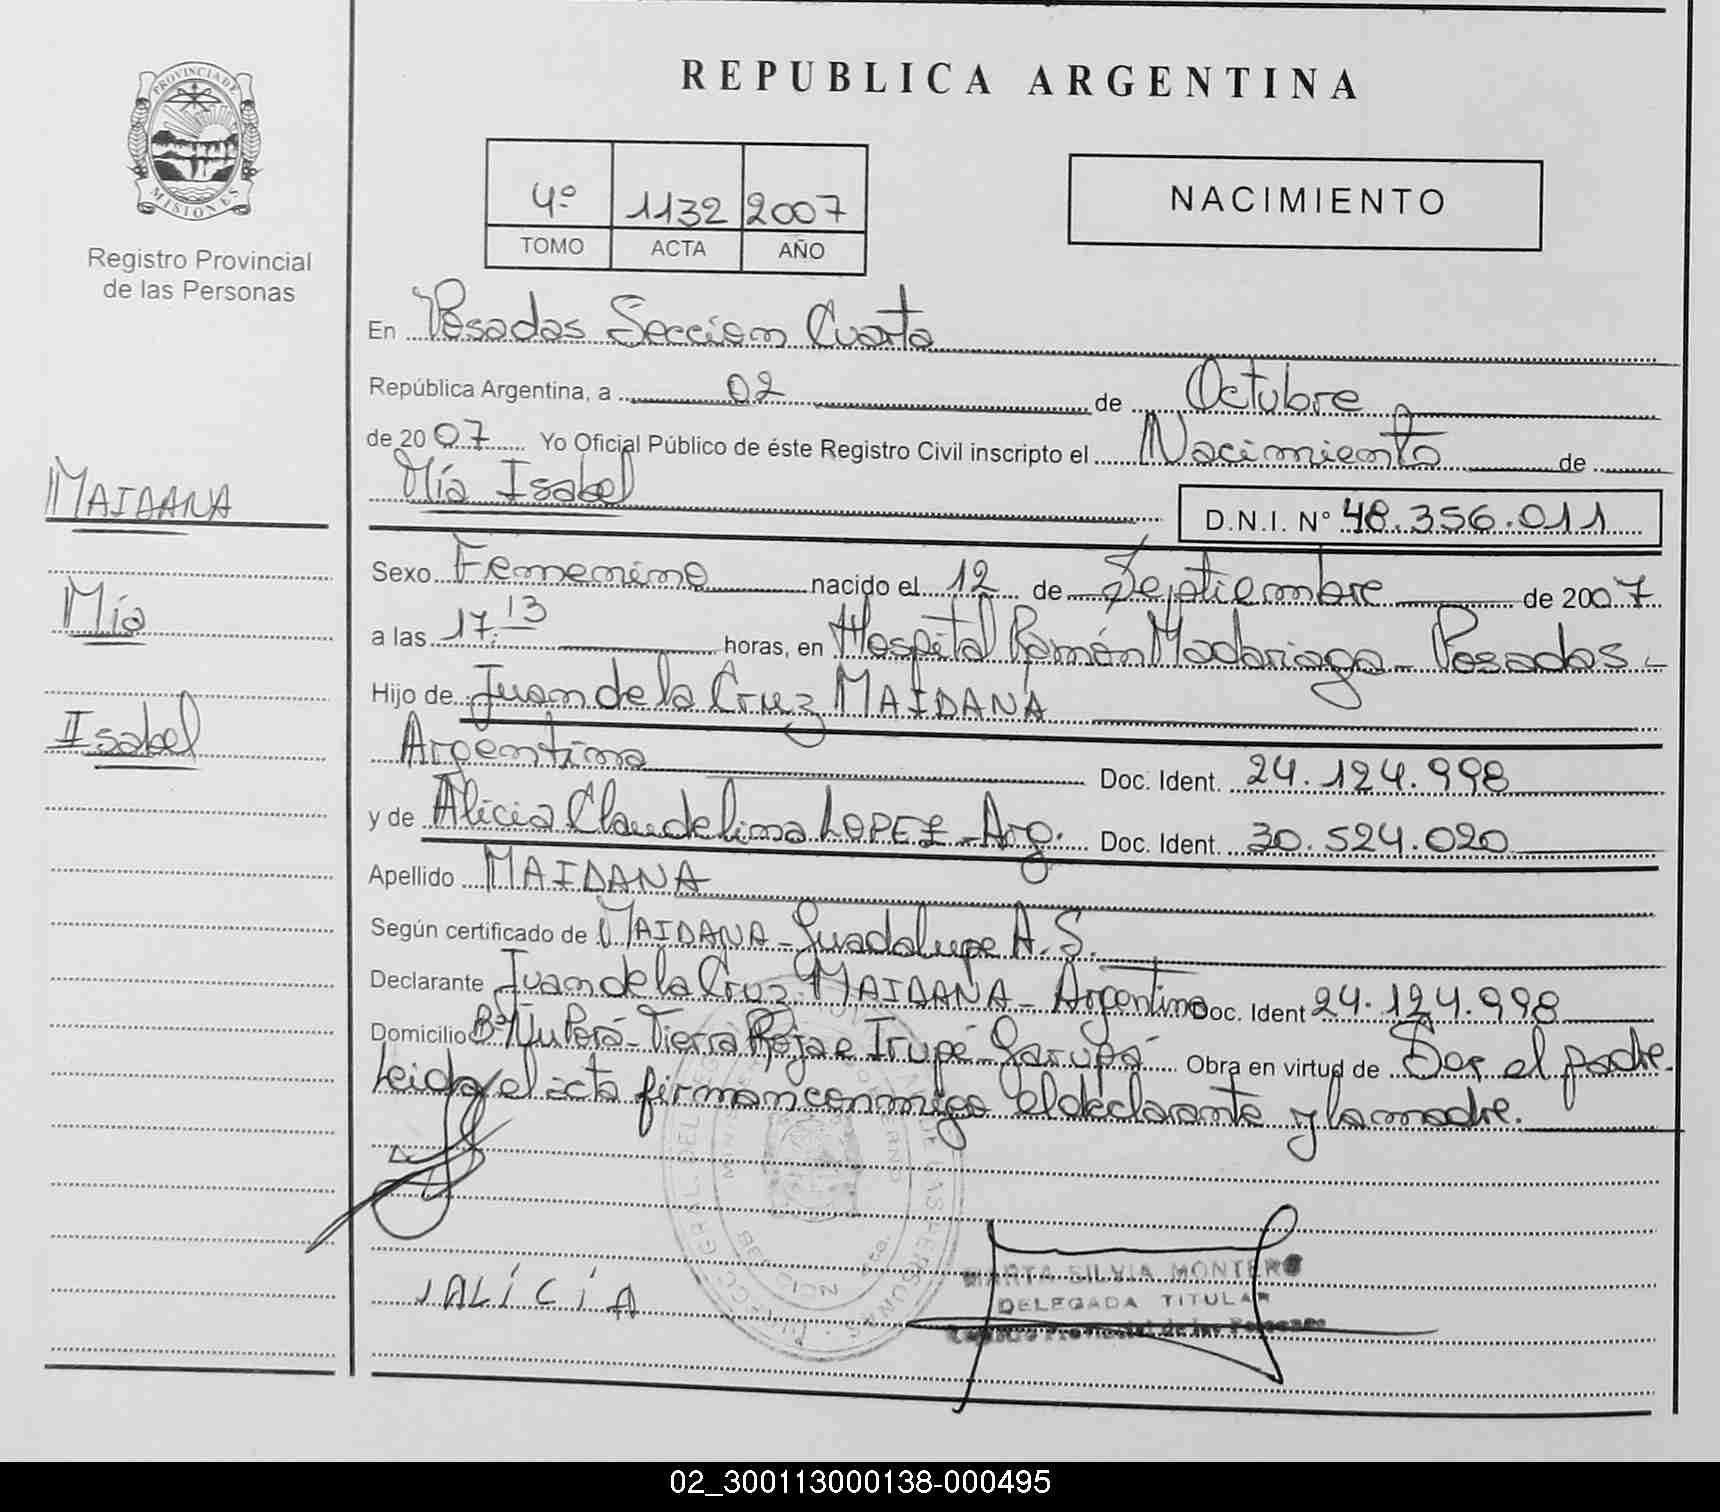 PROVINCIA DE
MISIONES
Registro Provincial
de las Personas
MAIDANA
Mía
Isabel
REPUBLICA ARGENTINA
4º 1132 2007
TOMO ACTA AÑO
NACIMIENTO
En Posadas Sección Cuarta
República Argentina, a 02 de Octubre
de 2007 Yo Oficial Público de éste Registro Civil inscripto el Nacimiento de
Mía Isabel
D.N.I. Nº 48.356.011
Sexo Femenino nacido el 12 de Septiembre de 2007
a las 17:13 horas, en Hospital Ramón Madariaga - Posadas -
Hijo de Juan de la Cruz MAIDANA
Argentina Doc. Ident. 24.124.998
y de Alicia Claudelina LOPEZ - Arg. Doc. Ident. 30.524.020
Apellido MAIDANA
Según certificado de MAIDANA - Guadalupe A. S.
Declarante Juan de la Cruz MAIDANA - Argentino Doc. Ident 24.124.998
Domicilio Bº Ñu Porá - Tierra Roja e Irupé - Garupá Obra en virtud de Ser el padre.
Leida el acta firman conmigo el declarante y la madre.
ALICIA
MARTA SILVIA MONTERO
DELEGADA TITULAR
Registro Provincial de las Personas
02_300113000138-000495